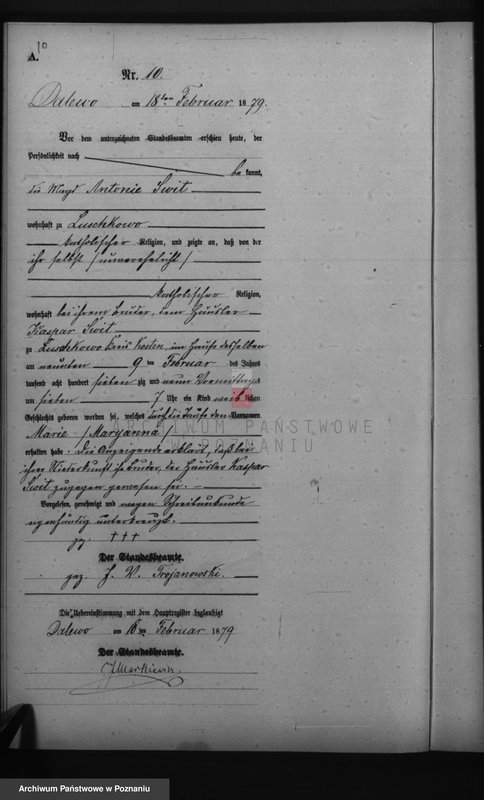 A. 10
Nr. 10.
Dalewo am 18ten Februar 1879.
Vor dem unterzeichneten Standesbeamten erschien heute, der
Persönlichkeit nach
be kannt,
die Magd Antonie Swit
wohnhaft zu Luschkowo
katholischer Religion, und zeigte an, daß von der
ihr selbst (unverehelicht)
katholischer Religion,
wohnhaft bei ihrem Bruder, dem Häusler
Kaspar Swit
zu Luschkowo Kreis Kosten, im Hause desselben
am neunten 9 ten Februar des Jahres
tausend acht hundert siebenzig und neun Vormittags
um sieben 7 Uhr ein Kind weiblichen
Geschlechts geboren worden sei, welches durch die Taufe den Vornamen
Marie (Maryanna)
erhalten habe. Die Anzeigende erklärt, daß bei
ihrer Niederkunft ihr Bruder, der Häusler Kaspar
Swit zugegen gewesen sei.
Vorgelesen, genehmigt und wegen Schreibunkunde
eigenhändig unterkreuzt.
gez. †††
Der Standesbeamte.
gez. J. V. Trojanowski.
Die Uebereinstimmung mit dem Hauptregister beglaubigt
Dalewo am 18 ten Februar 1879
Der Standesbeamte.
Markiewicz.
ARCHIWUM PAŃSTWOWE
W POZNANIU
Archiwum Państwowe w Poznaniu